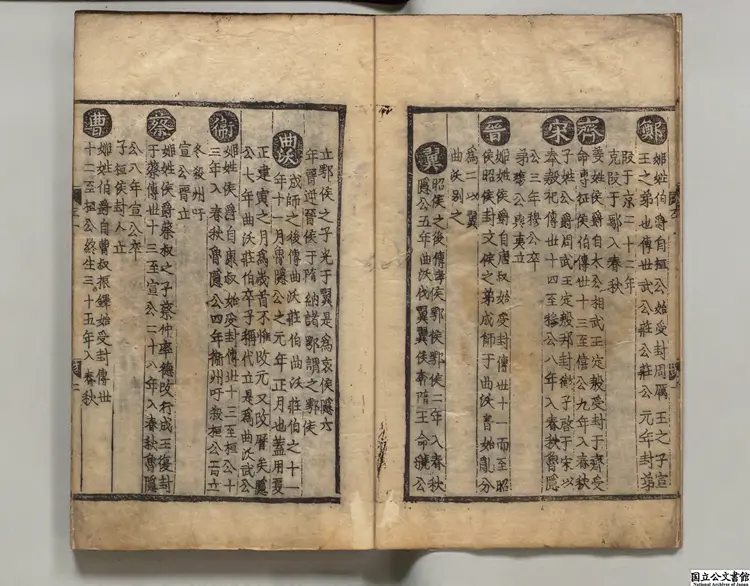 鄭
姬姓伯爵自桓公始受封周厲王之子宣
王之弟也傳世武公莊公莊公元年封弟
段于京二十二年
克段于鄢入春秋
齊
姜姓侯爵自太公相武王定殷受封于齊受
命專征侯伯傳世十三至僖公九年入春秋
宋
子姓公爵周武王定殷邦封微子啓于宋以
奉殷祀傳世十四至穆公八年入春秋魯隱
公三年穆公卒
弟殤公與夷立
晉
姬姓侯爵自唐叔始受封傳世十一而至昭
侯昭侯封文侯之弟成師于曲沃晉始亂分
為二以翼
曲沃别之
翼
昭侯之後傳孝侯鄂侯鄂侯二年入春秋
隱公五年曲沃伐翼翼侯奔隨王命虢公
立鄂侯之子光于翼是為哀侯隱六
年晉迎晉侯于隨納諸鄂謂之鄂侯
曲沃
成師之後傳曲沃莊伯曲沃莊伯之十一
年十一月魯隱公之元年正月也蓋用夏
正建寅之月為歲首不惟改元又改曆矣隱
公七年曲沃莊伯卒子稱代立是為曲沃武公
衛
姬姓侯爵自康叔始受封傳世十三至桓公十
三年入春秋魯隱公四年衛州吁殺桓公自立
冬殺州吁
宣公晉立
蔡
姬姓侯爵蔡叔之子蔡仲率德改行成王復封
于蔡傳世十三至宣公二十八年入春秋魯隱
公八年宣公卒
子桓侯封人立
曹
姬姓伯爵自曹叔振鐸始受封傳世
十二至桓公終生三十五年入春秋
国立公文書館
National Archives of Japan